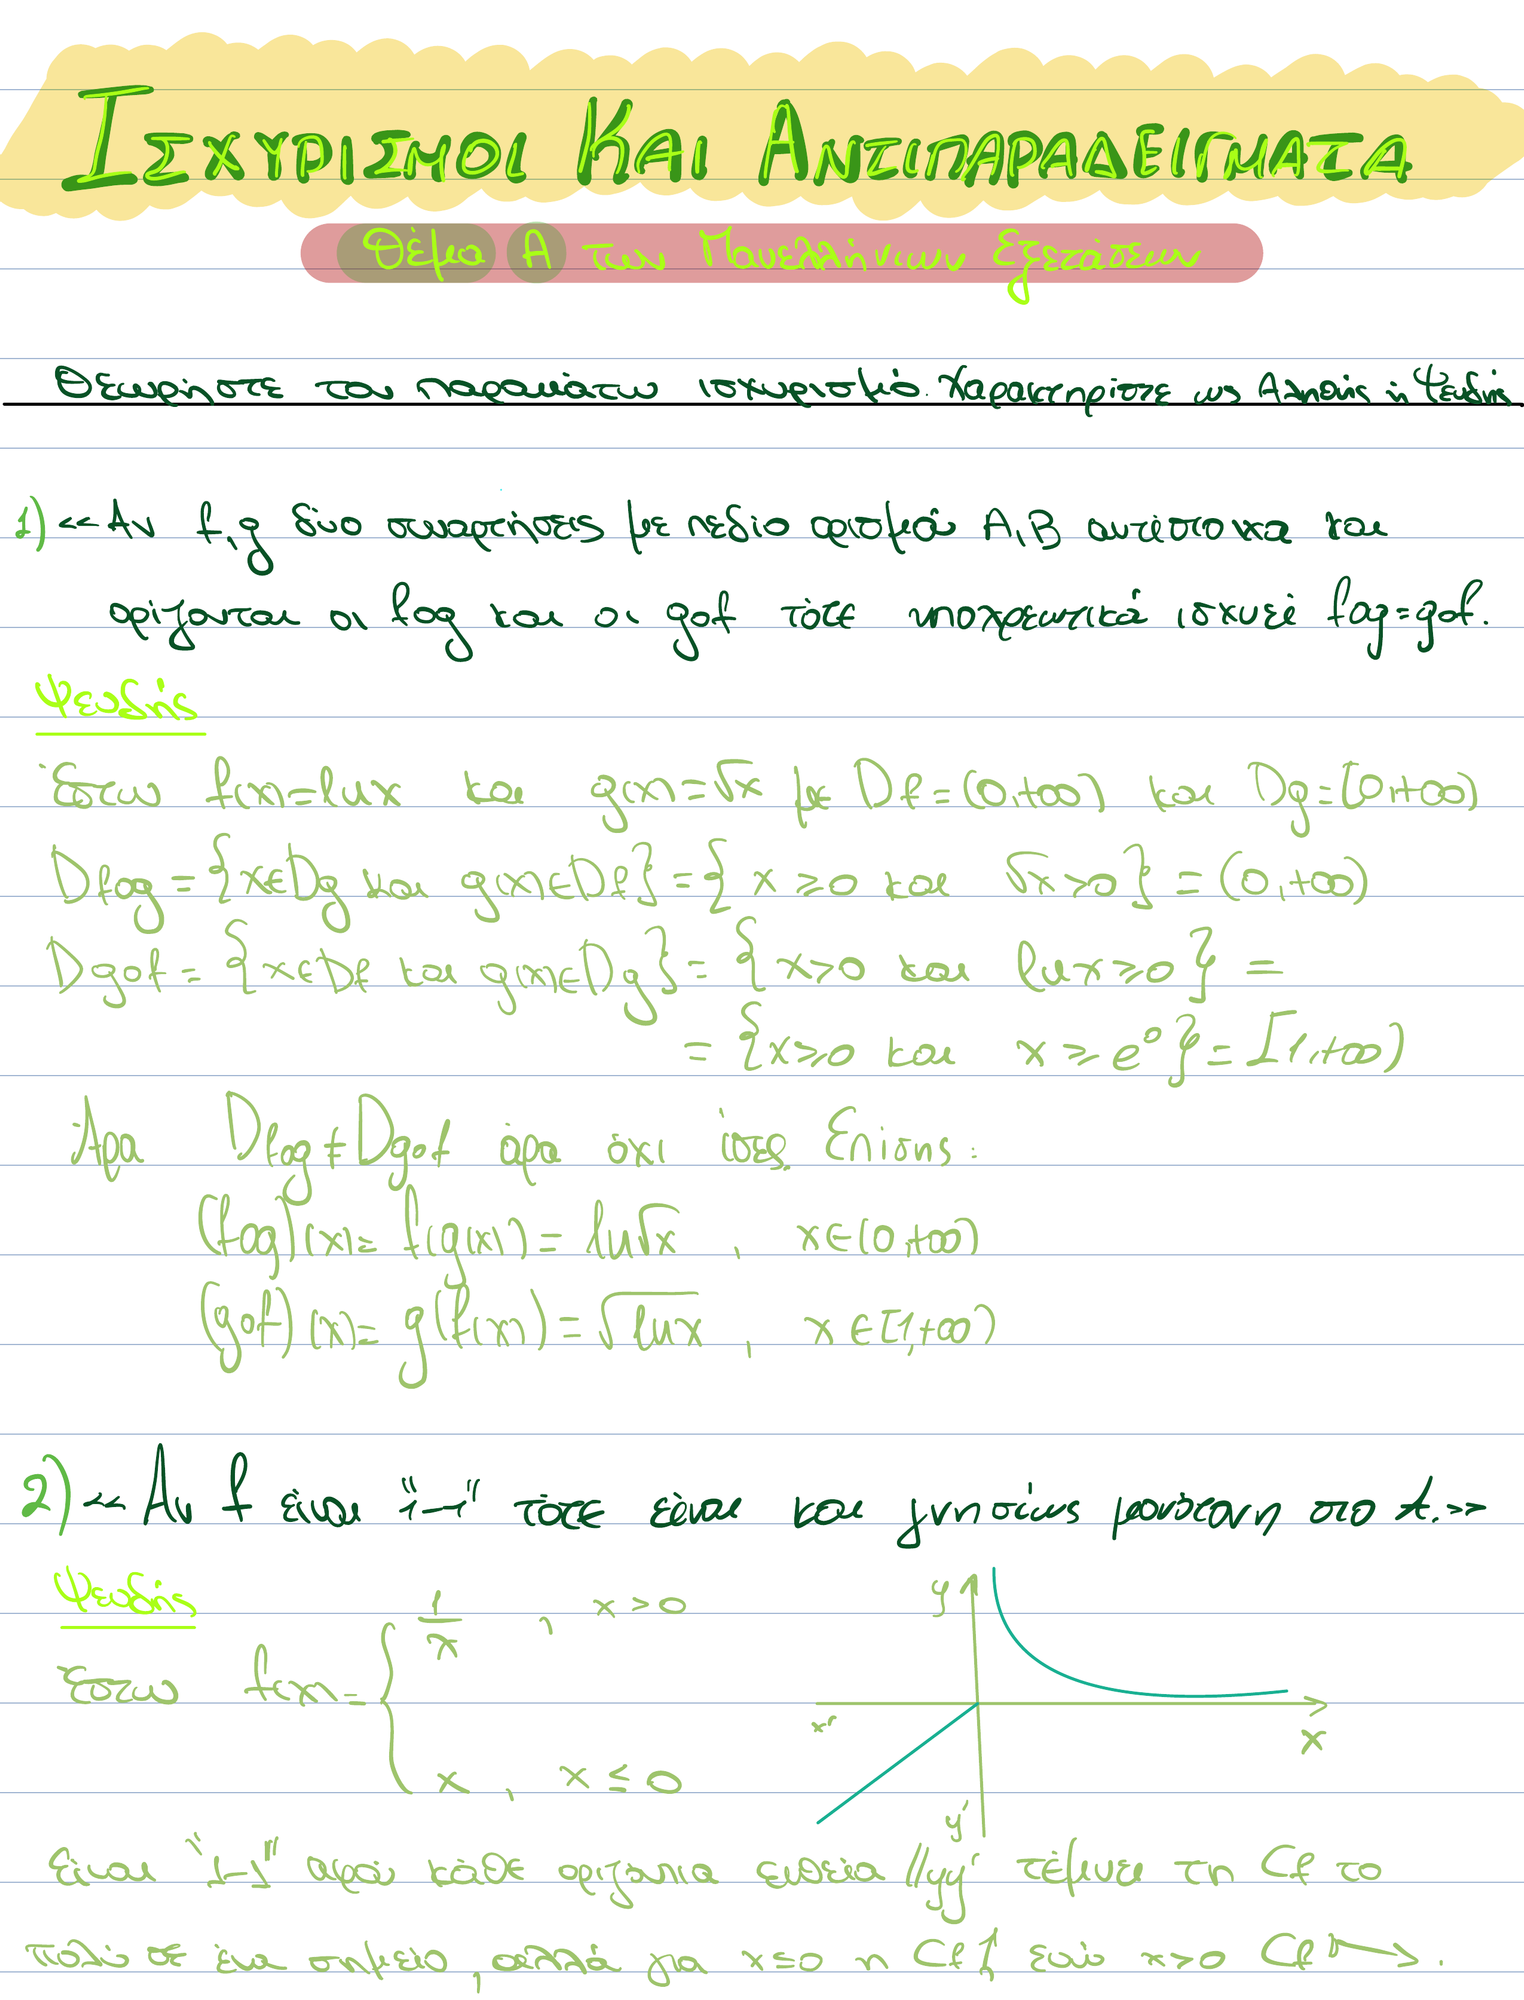 ΙΣΧΥΡΙΣΜΟΙ ΚΑΙ ΑΝΤΙΠΑΡΑΔΕΙΓΜΑΤΑ
Θέμα Α των Πανελλήνιων Εξετάσεων
Θεωρήστε τον παρακάτω ισχυρισμό. Χαρακτηρίστε ως Αληθής ή Ψευδής
1) <<Αν f,g δύο συναρτήσεις με πεδίο ορισμού Α,Β αντίστοιχα και
ορίζονται οι fog και οι gof τότε υποχρεωτικά ισχυεί fog=gof.
Ψευδής
Έστω f(x)=lnx και g(x)=√x με Df=(0,+∞) και Dg=[0,+∞)
Dfog={x∈Dg και g(x)∈Df}={x≥0 και √x>0}=(0,+∞)
Dgof={x∈Df και g(x)∈Dg}={x>0 και lnx≥0}=
={x≥0 και x≥e⁰}=[1,+∞)
Άρα Dfog≠Dgof άρα όχι ίσες. Επίσης:
(fog)(x)=f(g(x))=ln√x , x∈(0,+∞)
(gof)(x)=g(f(x))=√lnx , x∈[1,+∞)
2) <<Αν f είναι "1-1" τότε είναι και γνησίως μονότονη στο Α.>>
Ψευδής
Έστω f(x)= { 1/x , x>0
x , x≤0
y
x'
x
y'
Είναι "1-1" αφού κάθε οριζόντια ευθεία //yy' τέμνει τη Cf το
πολύ σε ένα σημείο, αλλά για x≤0 η Cf ↑ ενώ x>0 Cf ↘.